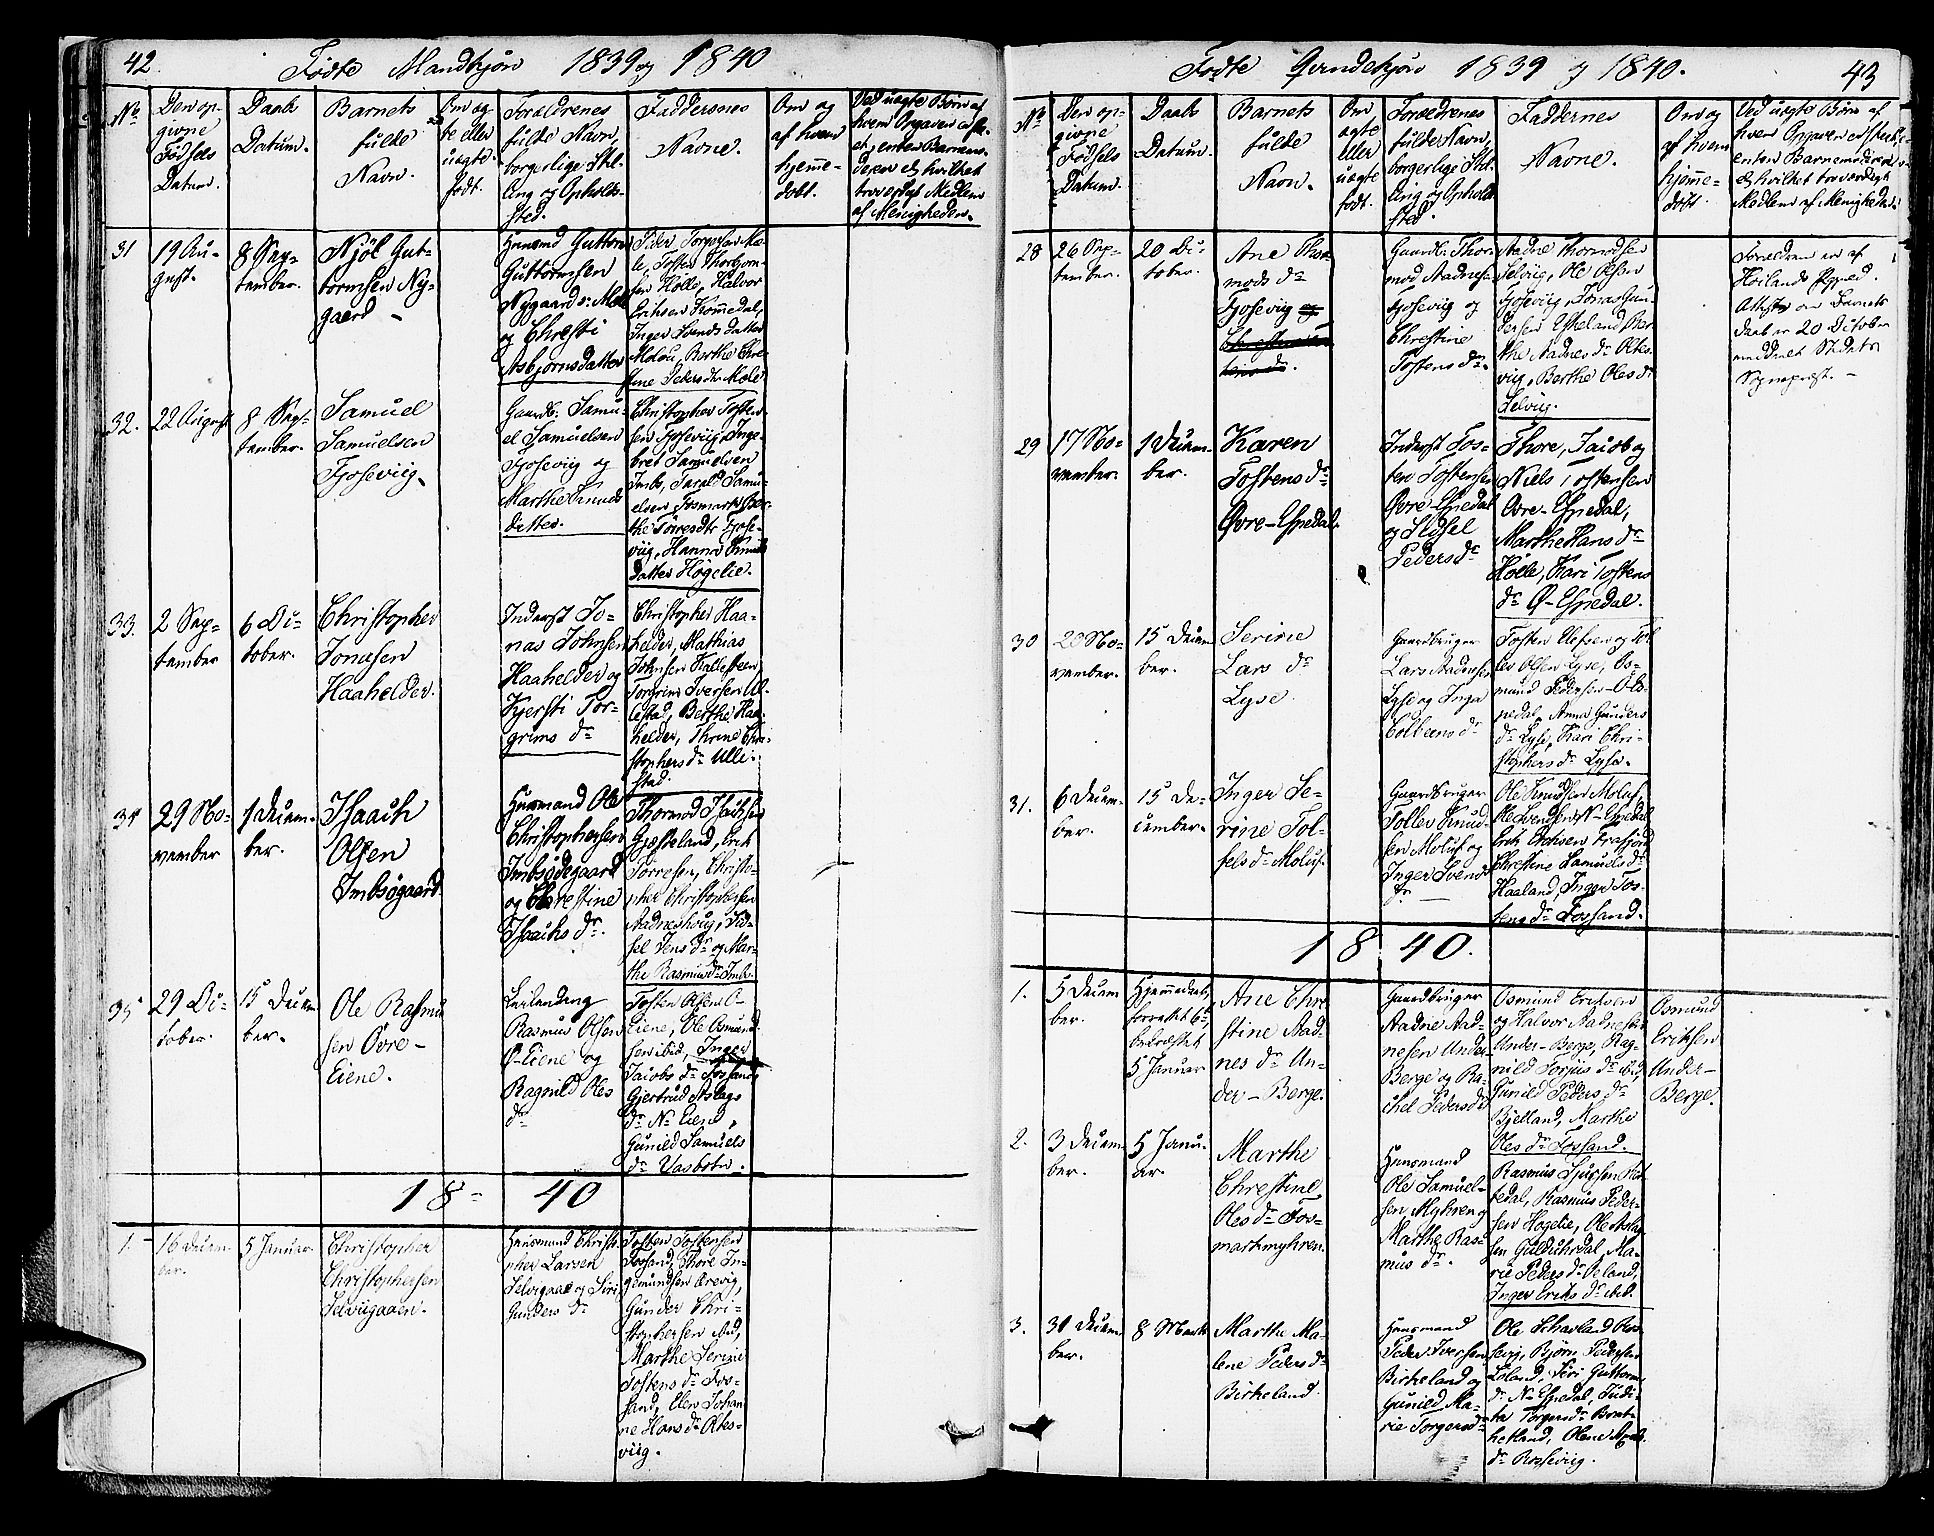 42.
Fødte Mandkjøn 1839 og 1840
No
Den op-
givne
Fødsels
Datum.
Daab
Datum.
Barnets
fulde
Navn.
Om æg-
te eller
uægte
født.
Forældrenes
fulde Navn,
borgerlige Stil-
ling og Opholds-
sted.
Faddernes
Navne.
Om og
af hvem
hjemme-
døbt.
Ved uægte Børn af
hvem Opgaven er skr.
af Menigheden.
31
19 Au-
gust.
8 Sep-
tember.
Njöl Gut-
tormsen Ny-
gaard -
Huusmd Guttorm
Guttormsen
Nygaard v: Mæle
og Christi
Asbjørnsdatter
Peder Torgersen Mæ-
le, Tosten Thorbjørn-
sen Hølle, Halvor
Erichsen Kommedal,
Inger Svends datter
Molau, Berthe Chre-
stine Peders dr Mæle
32.
22 August
8 Sep-
tember.
Samuel
Samuelsen
Fjoseviig.
Gaardb: Samu-
el Samuelsen
Fjoseviig og
Marthe Knuds
datter.
Christopher Tosten-
sen Fjoseviig, Inge-
bret Samuelsen
Imbs, Tarald Samu-
elsen Fosmark, Ber-
the Torresdr Fjose-
viig, Hanna Knuds
datter Høgelie.
33.
2 Sep-
tember
6 Oc-
tober.
Christopher
Jonasen
Haahelder.
Inderst Jo-
nas Johnsen
Haahelder og
Kjersti Tor-
grims dr
Christopher Haa-
helder, Mathias
Johnsen Kallesteen,
Torgrim Iversen Ul-
lestad, Berthe Haa-
helder, Thrine Chri-
stophers dr Ulle-
stad.
34
29 No-
vember
1 Decem-
ber.
Isaach
Olsen
Imbsøgaard
Huusmand Ole
Christophersen
Imbsødegaard
og Chrestine
Isaachs dr.
Thormod Isachsen
Gjesteland, Erik
Torresen, Christo-
pher Christophersen
Aadneshoug, Sid-
sel Jens dr og Mar-
the Rasmus dr Imbs.
35
29 Oc-
tober.
15 Decem-
ber.
Ole Rasmu-
sen Øvre-
Eiene.
Leilending
Rasmus Olsen
Ø-Eiene og
Ragnild Oles
dr
Tosten Olsen Ø-
Eiene, Ole Osmund-
sen ibid, Inger
Jacobs dr Fossand,
Gjertrud Aslags
dr N. Eiene,
Gunild Samuels
dr Vasbotn.
18 - 40
1.
16 Decem-
ber.
5 Januar.
Christopher
Christophersen
Selviigaaen.
Huusmand Christo-
pher Larsen
Selviigaae og Siri
Gunders dr
Tosten Tostensen
Fossand, Thore In-
gemundsen Ørevig,
Gunder Chri-
stophersen ibid,
Marthe Serine
Tostens dr Fos-
sand, Elen Johan-
ne Hans dr Oltes-
viig.
Fødte Qvindekjøn 1839 og 1840.
43
No
Den op-
givne
Fødsels
Datum.
Daab
Datum.
Barnets
fulde
Navn.
Om
ægte
eller
uægte
født.
Forældrenes
fulde Navn,
borgerlige Stil-
ling og Opholds-
sted.
Faddernes
Navne.
Om og
af hvem
hjemme-
døbt.
Ved uægte Børn af
hvem Opgaven er skeet,
enten Barnemoderen
el. hvilket troværdigt
Medlem af Menigheden.
28
26 Sep-
tember.
20 Oc-
tober.
Ane Thor-
mods dr
Fjoseviig og
Gaardb: Thor-
mod Aadnesen
Fjoseviig og
Chrestine
Tostens dr.
Aadne Thormodsen
Selvig, Ole Olsen
Fjoseviig, Jonas Gun-
dersen Eskeland, Ber-
the Aadnes dr Oltes-
viig, Berthe Oles dr
Selvig.
Forældrene er af
Høilands Præsgd.
Attest om Barnets
Daab er 20 October
meddeelt Stedets
Sognepræst. -
29
17 No-
vember.
1 Decem-
ber.
Karen
Tostens dr
Øvre-Espedal.
Inderst Tos-
ten Tostensen
Øvre-Espedal
og Sidsel
Peders dr
Thore, Jacob og
Niels Tostensen
Øvre-Espedal,
Marthe Hans dr
Hølle, Kari Tostens
dr Ø-Espedal.
30
20 No-
vember.
15 Decem-
ber.
Serine
Lars dr
Lyse
Gaardbruger
Lars Aadnesen
Lyse og Inga
Colbeens dr
Osmund Pedersen Øls-
pedal, Anna Gunders
dr Lyse, Kari Chri-
stophers dr Lyse.
31.
6 Decem-
ber.
15 De-
cember.
Inger Se-
rine Tol-
lefs dr Molaf.
Gaardbruger
Tollev Knud-
sen Molaf og
Inger Svends
dr
Ole Knudsen Molaf,
Ole Svendsen N-Espedal
Erik Erichsen Frafjord
Chrestine Samuels dr
Haaland, Inger Tos-
tens dr Fossand.
18 40.
1.
5 Decem-
ber.
Hjemmedøbt
forrettet 6te,
bekræftet
5 Januar
Ane Chre-
stine Aad-
nes dr Un-
der-Berge.
Gaardbruger
Aadne Aad-
nesen Under-
Berge og Ra-
chel Peders dr
Osmund Eriksen
og Halvor Aadnesen
Under-Berge, Rag-
nild Torjus dr ibid,
Gunild Peders dr
Bjelland, Marthe
Oles dr Fossand.
Osmund
Eriksen
Under-
Berge.
2.
3 Decem-
ber.
5 Janu-
ar.
Marthe
Chrestine
Oles dr Fos-
markmyhren.
Huusmand
Ole Samuel-
sen Myhren og
Marthe Ras-
mus dr.
Rasmus Sjursen Bot-
tedal, Rasmus Peder-
sen Høgelie, Ole Aslag-
sen Gulduhrdal, Ma-
rie Peders dr Øeland,
Inger Eriks dr ibid.
3.
31 Decem-
ber.
8 Marts
Marthe Ma-
lene Peders dr
Birkeland.
Huusmand
Peder Iversen
Birkeland og
Gunild Ma-
rie Torgersdr
Ole Schavland Ros-
sevig, Bjørn Pedersen
Løland, Siri Guttorms
dr N-Espedal, Judi-
tha Torgers dr Brat-
hetland, Olene Aasel
dr Rosseviig.